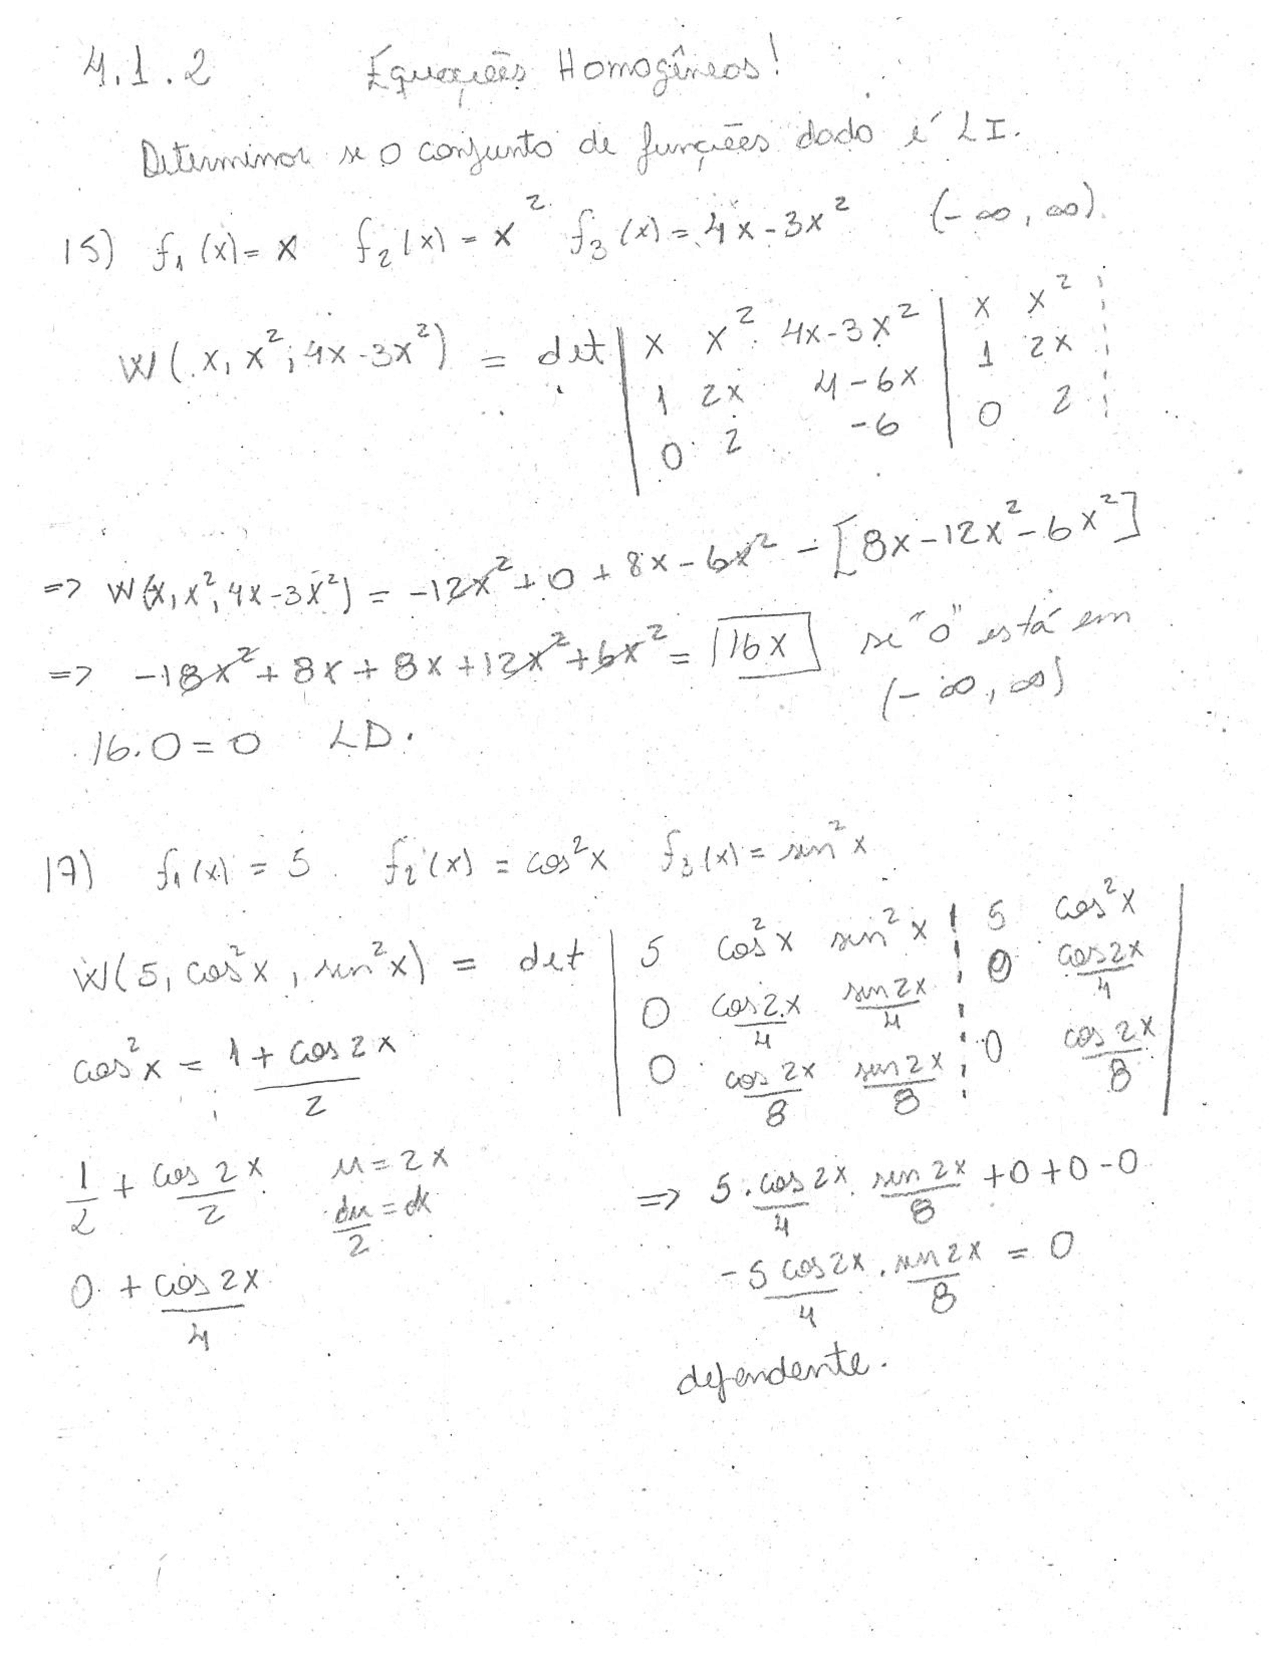 4.1.2 Equações Homogêneas!
Determinar se o conjunto de funções dado é LI.
15) f₁(x) = x f₂(x) = x² f₃(x) = 4x-3x² (-∞, ∞).
W(x, x², 4x-3x²) = det | x x² 4x-3x² | x x²
1 2x 4-6x | 1 2x
0 2 -6 | 0 2
=> W(x, x², 4x-3x²) = -12x² + 0 + 8x - 6x² - [8x - 12x² - 6x²]
=> -18x² + 8x + 8x + 12x² + 6x² = 16x se "0" está em
(-∞, ∞)
16.0 = 0 LD.
17) f₁(x) = 5 f₂(x) = cos²x f₃(x) = sen²x
W(5, cos²x, sen²x) = det | 5 cos²x sen²x ¦ 5 cos²x |
0 cos2x/4 sen2x/4 ¦ 0 cos2x/4
0 cos2x/8 sen2x/8 ¦ 0 cos2x/8
cos²x = 1 + cos2x/2
1/2 + cos2x/2 u = 2x
du/2 = dx
0 + cos2x/4
=> 5.cos2x/4 . sen2x/8 + 0 + 0 - 0
-5cos2x/4 . sen2x/8 = 0
dependente.